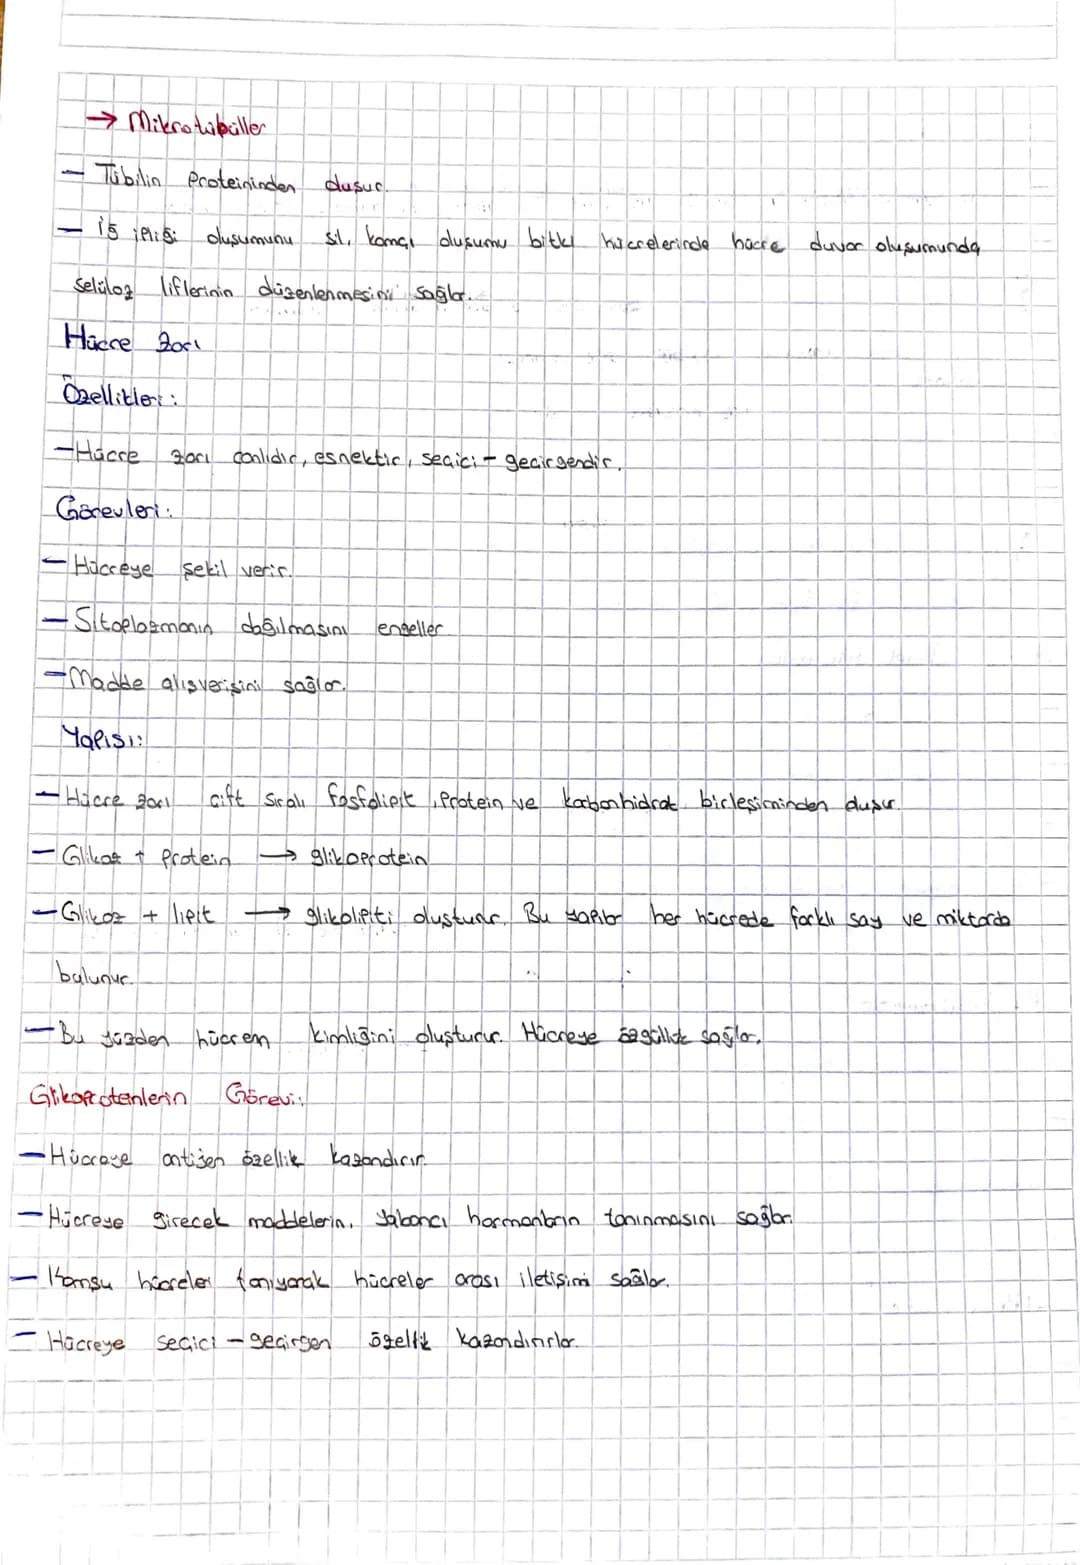 → Mikrotübüller
- Tübilin Proteininden oluşur.
- İğ ipliği oluşumunu sil, kamçı oluşumu bitki hücrelerinde hücre duvar oluşumunda
selüloz liflerinin düzenlenmesini sağlar.
Hücre Zarı
Özellikleri:
- Hücre zarı canlıdır, esnektir, seçici-geçirgendir.
Görevleri:
- Hücreye şekil verir.
- Sitoplazmanın dağılmasını engeller.
- Madde alışverişini sağlar.
Yapısı:
- Hücre zarı çift sıralı fosfolipit, protein ve karbonhidrat birleşiminden oluşur.
- Glikoz + protein → glikoprotein
- Glikoz + lipit → glikolipiti oluşturur. Bu yapılar her hücrede farklı say ve miktarda
bulunur.
- Bu yüzden hücrem kimliğini oluşturur. Hücreye özgüllük sağlar.
Glikoprotenlerin Görevi:
- Hücreye antijen özellik kazandırır.
- Hücreye girecek maddelerin, yabancı hormonların tanınmasını sağlar.
- Komşu hücreler tanıyarak hücreler arası iletişimi sağlar.
- Hücreye seçici-geçirgen özellik kazandırırlar.